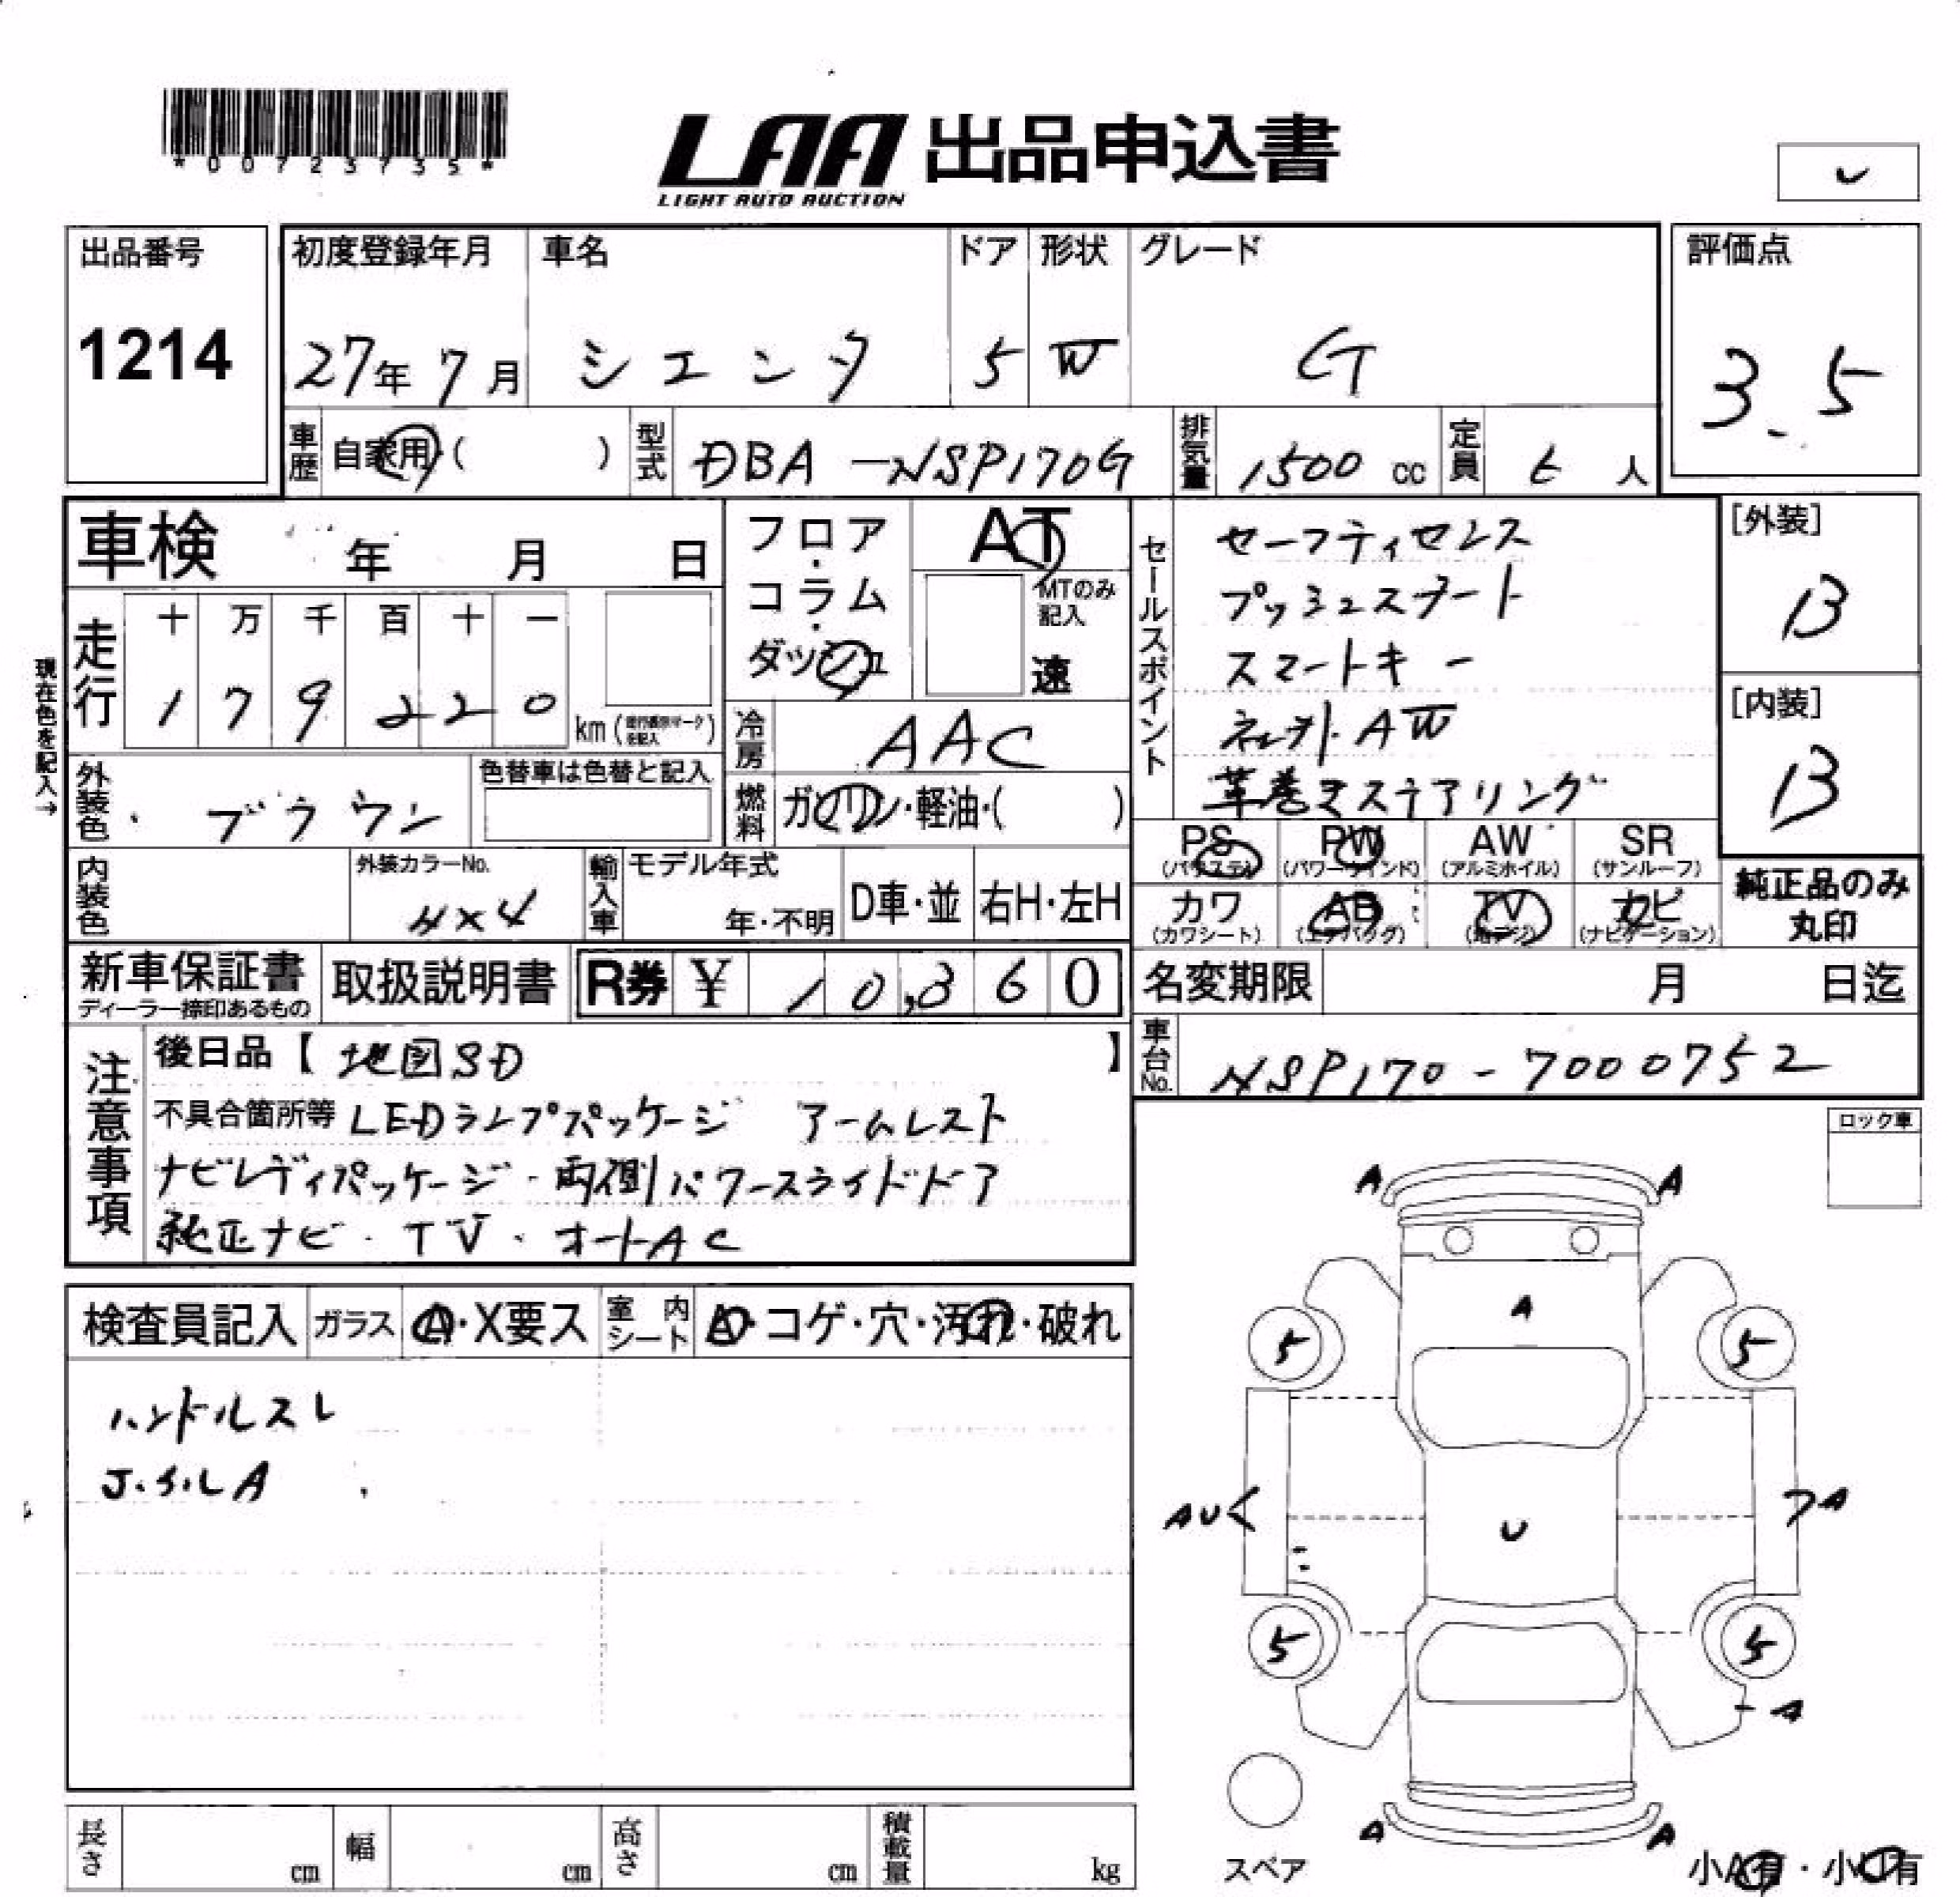 *00723735*
LAA 出品申込書
LIGHT AUTO AUCTION
出品番号
1214
初度登録年月 車名 ドア 形状 グレード
27年 7月 シエンタ 5 W G
評価点
3.5
車歴 自家用・( ) 型式 DBA-NSP170G 排気量 1500 cc 定員 6 人
車検 年 月 日
フロア・コラム・ダッシュ
AT
MTのみ記入
速
現在色を記入→
走行 十 万 千 百 十 一
1 7 9 2 2 0 km (走行表示マークを記入)
冷房 AAC
外装色 ブラウン 色替車は色替と記入
燃料 ガソリン・軽油・( )
内装色 外装カラーNo. 4×4
輸入車 モデル年式 年・不明 D車・並 右H・左H
セールスポイント
セーフティセンス
プッシュスタート
スマートキー
AW
革巻きステアリング
[外装]
B
[内装]
B
PS (パワステ) PW (パワーウインド) AW (アルミホイル) SR (サンルーフ)
カワ (カワシート) AB (エアバッグ) TV (地デジ) ナビ (ナビゲーション)
純正品のみ丸印
新車保証書 ディーラー捺印あるもの 取扱説明書 R券 ¥ 10,360
名変期限 月 日迄
車台No. NSP170-7000752
注意事項
後日品【 地図SD 】
不具合箇所等 LEDランプパッケージ アームレスト
ナビレディパッケージ・両側パワースライドドア
純正ナビ・TV・オートAC
ロック車
検査員記入 ガラス A・X要ス 室内シート A・コゲ・穴・汚れ・破れ
ハンドルスレ
A A
A
5 5
AU A
U
5 5
A
A A
スペア
小A有・小U有
長さ cm 幅 cm 高さ cm 積載量 kg